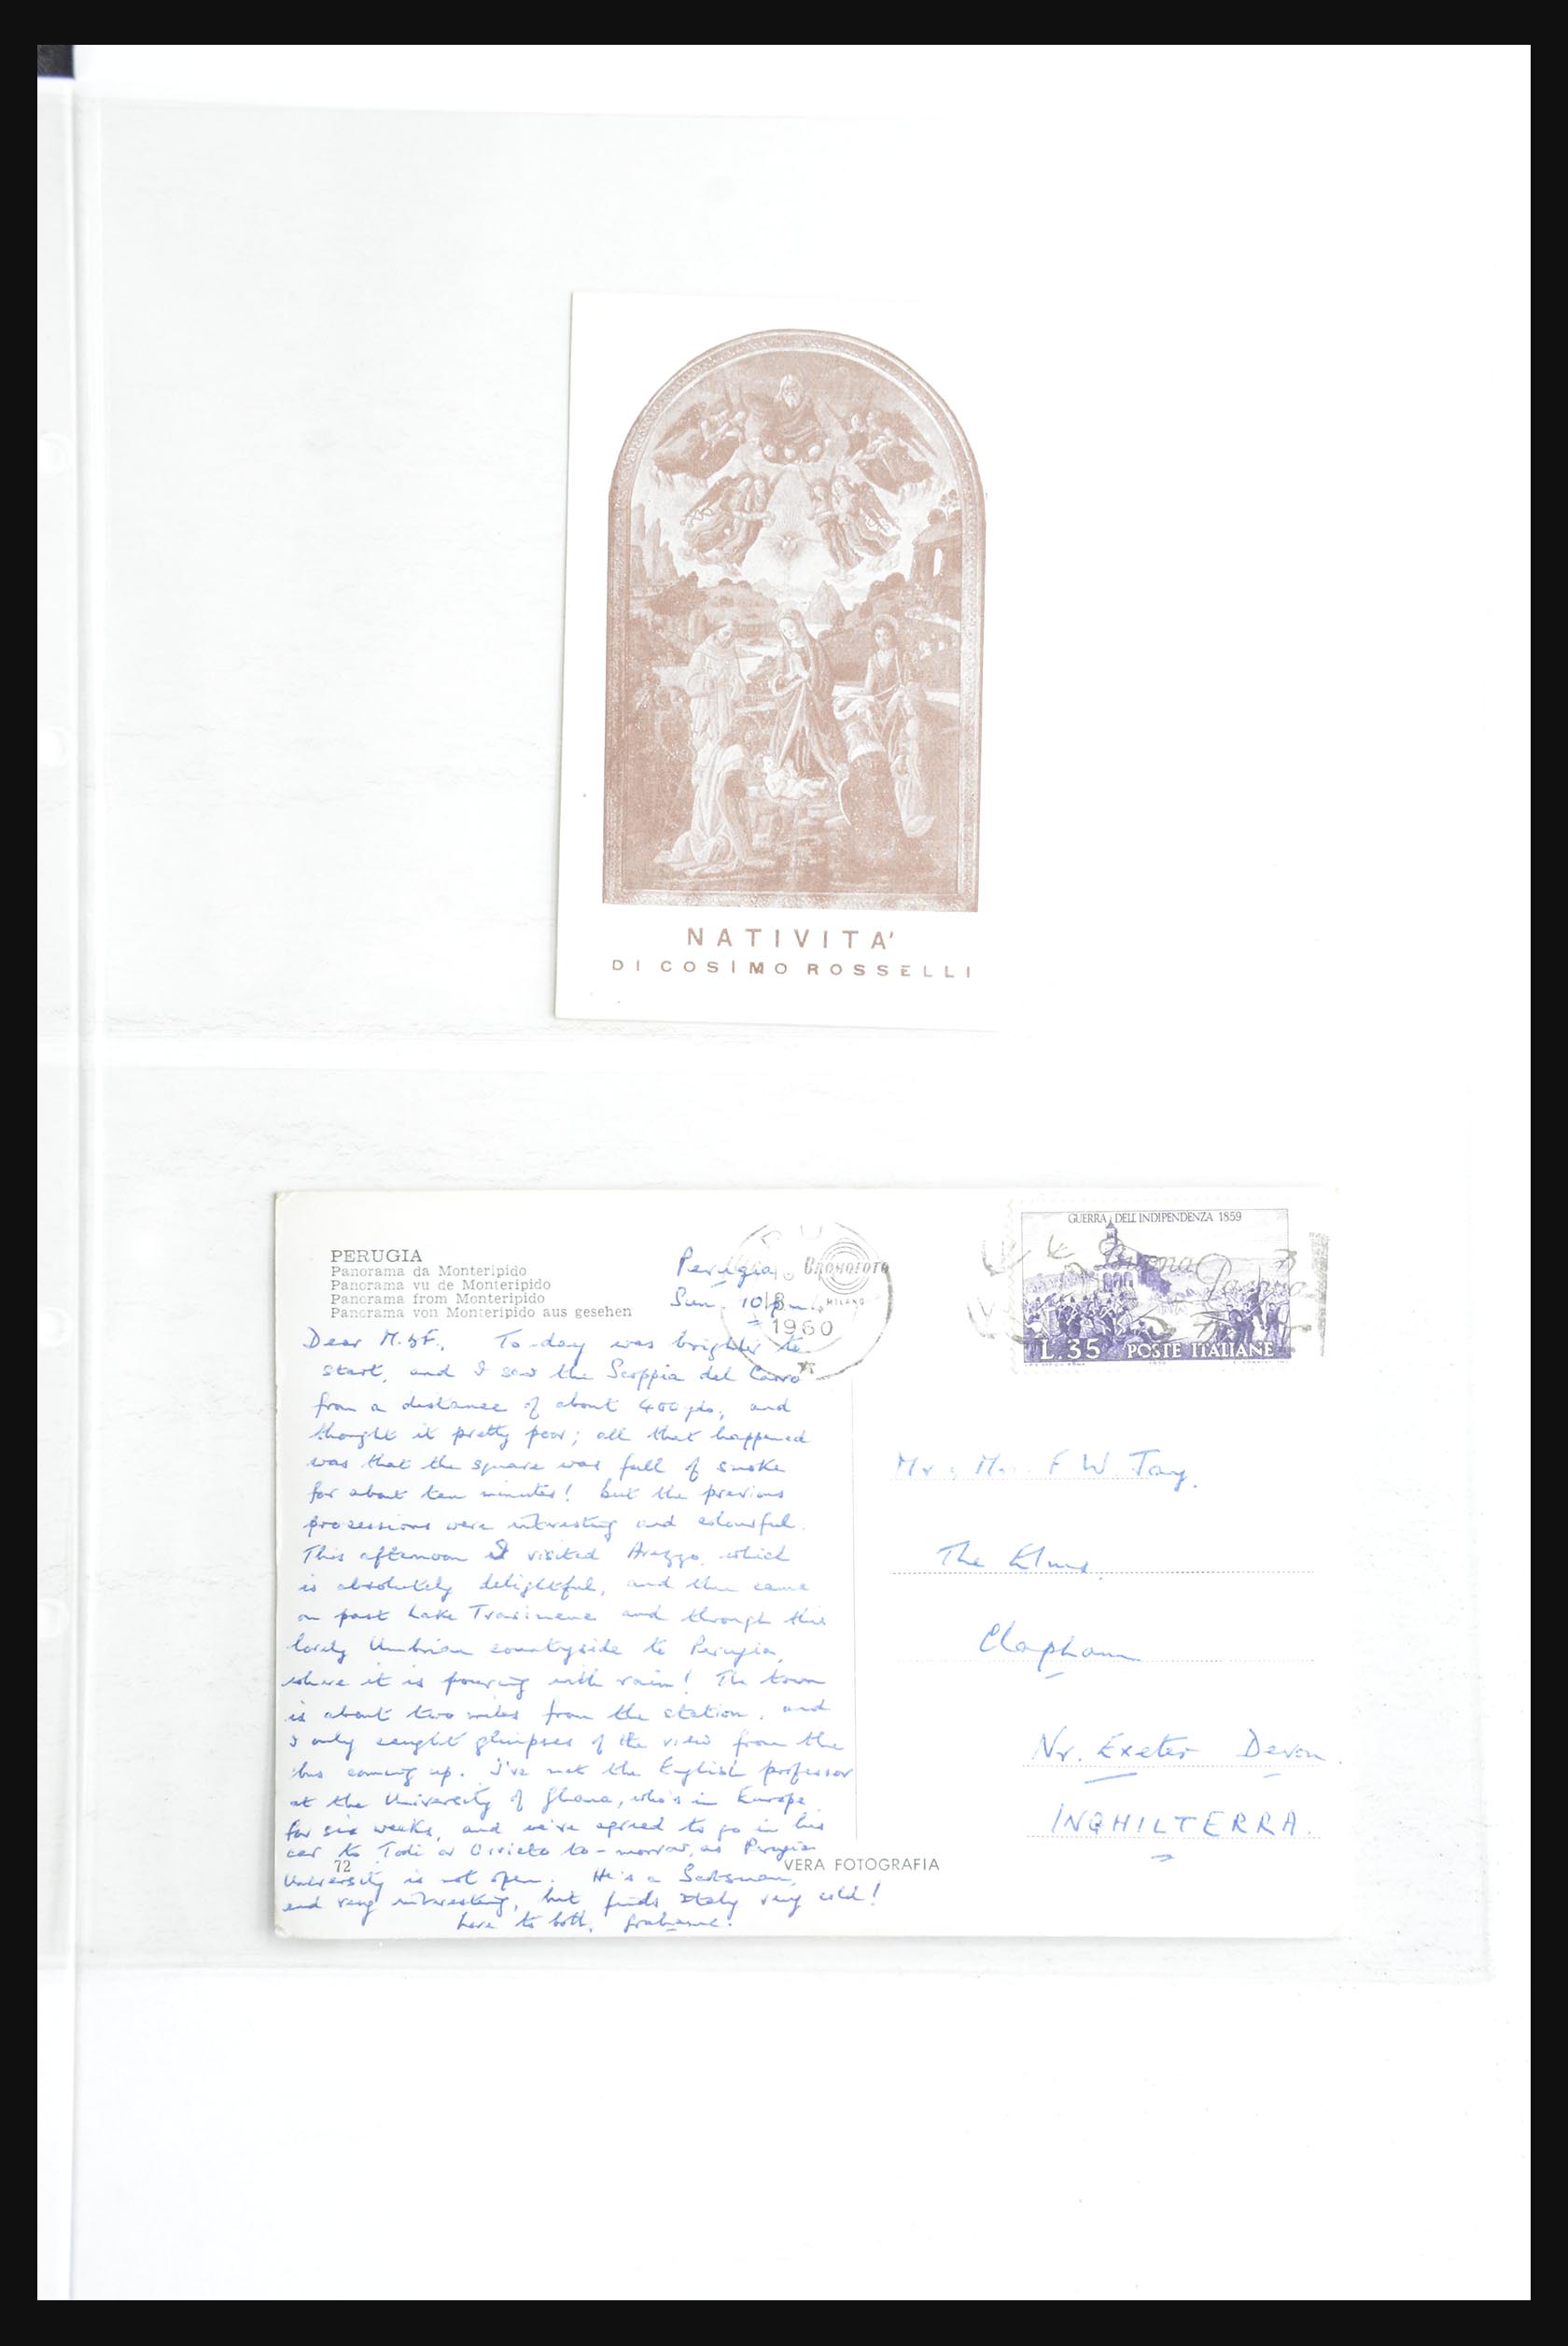 NATIVITA'
DI COSIMO ROSSELLI
PERUGIA
Panorama da Monteripido
Panorama vu de Monteripido
Panorama from Monteripido
Panorama von Monteripido aus gesehen
Perugia
Sun. 10 pm.
BROMOFOTO
MILANO
1960
GUERRA DELL'INDIPENDENZA 1859
Buona
L.35 POSTE ITALIANE
Dear M. & F., To-day was brighter to
start, and I saw the Scoppia del Carro
from a distance of about 400 yds, and
thought it pretty poor; all that happened
was that the square was full of smoke
for about ten minutes! but the previous
processions were interesting and colourful.
This afternoon I visited Arezzo, which
is absolutely delightful, and then came
on past Lake Trasimene and through this
lovely Umbrian countryside to Perugia,
where it is pouring with rain! The town
is about two miles from the station, and
I only caught glimpses of the view from the
bus coming up. I've met the English professor
at the University of Ghana, who's in Europe
for six weeks, and we've agreed to go in his
car to Todi or Orvieto to-morrow, as Perugia
University is not open. He's a Scotsman,
and very interesting, but finds Italy very cold!
Love to both, Grahame.
72
VERA FOTOGRAFIA
Mr. Mrs. F W Tay.
The Elms,
Clapham
Nr. Exeter Devon.
INGHILTERRA.